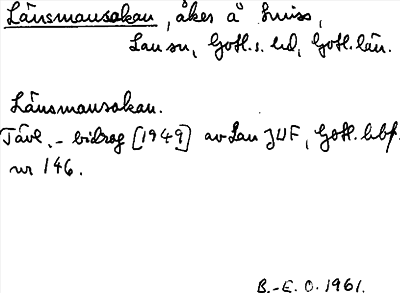 Länsmansakan, åker å Smiss,
Lau sn, Gotl. s. hd, Gotl. län.
Länsmansakan.
Tävl.-bidrag [1949] av Lau JUF, Gotl. bbf.
nr 146.
B.-E. O. 1961.